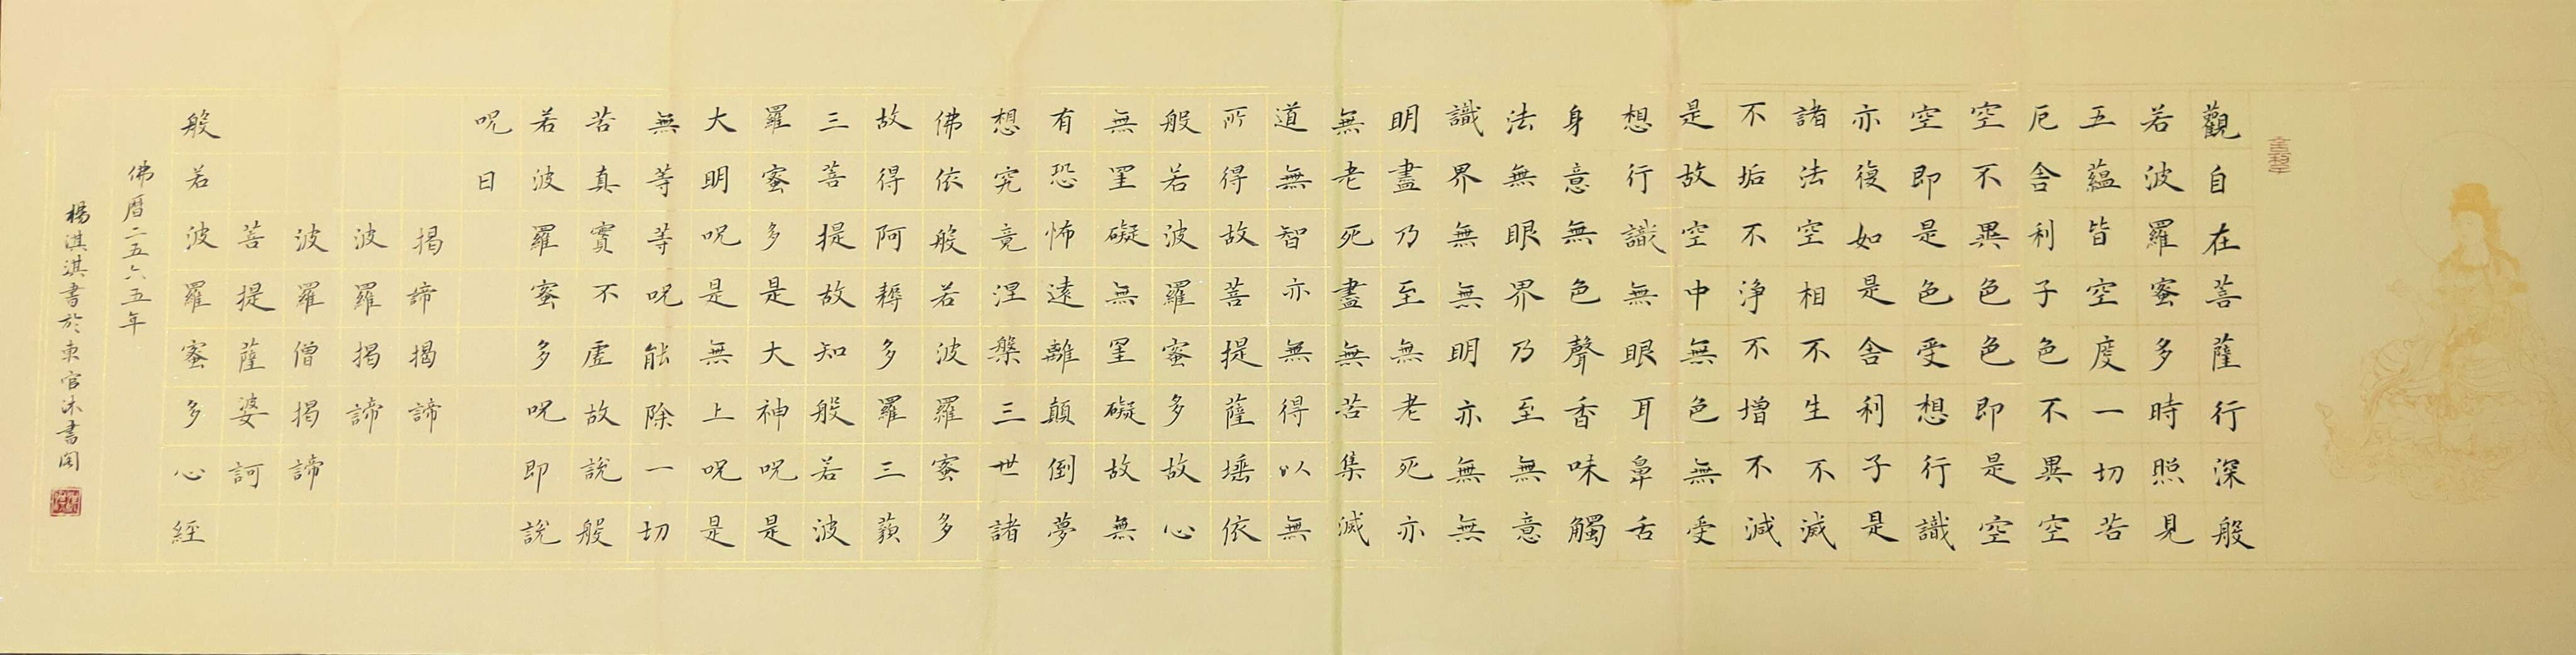 觀自在菩薩行深般
若波羅蜜多時照見
五蘊皆空度一切苦
厄舍利子色不異空
空不異色色即是空
空即是色受想行識
亦復如是舍利子是
諸法空相不生不滅
不垢不淨不增不減
是故空中無色無受
想行識無眼耳鼻舌
身意無色聲香味觸
法無眼界乃至無意
識界無無明亦無無
明盡乃至無老死亦
無老死盡無苦集滅
道無智亦無得以無
所得故菩提薩埵依
般若波羅蜜多故心
無罣礙無罣礙故無
有恐怖遠離顛倒夢
想究竟涅槃三世諸
佛依般若波羅蜜多
故得阿耨多羅三藐
三菩提故知般若波
羅蜜多是大神呪是
大明呪是無上呪是
無等等呪能除一切
苦真實不虛故說般
若波羅蜜多呪即說
呪曰
揭諦揭諦
波羅揭諦
波羅僧揭諦
菩提薩婆訶
般若波羅蜜多心經
佛曆二五六五年
楊淇淇書於東官沐書閣